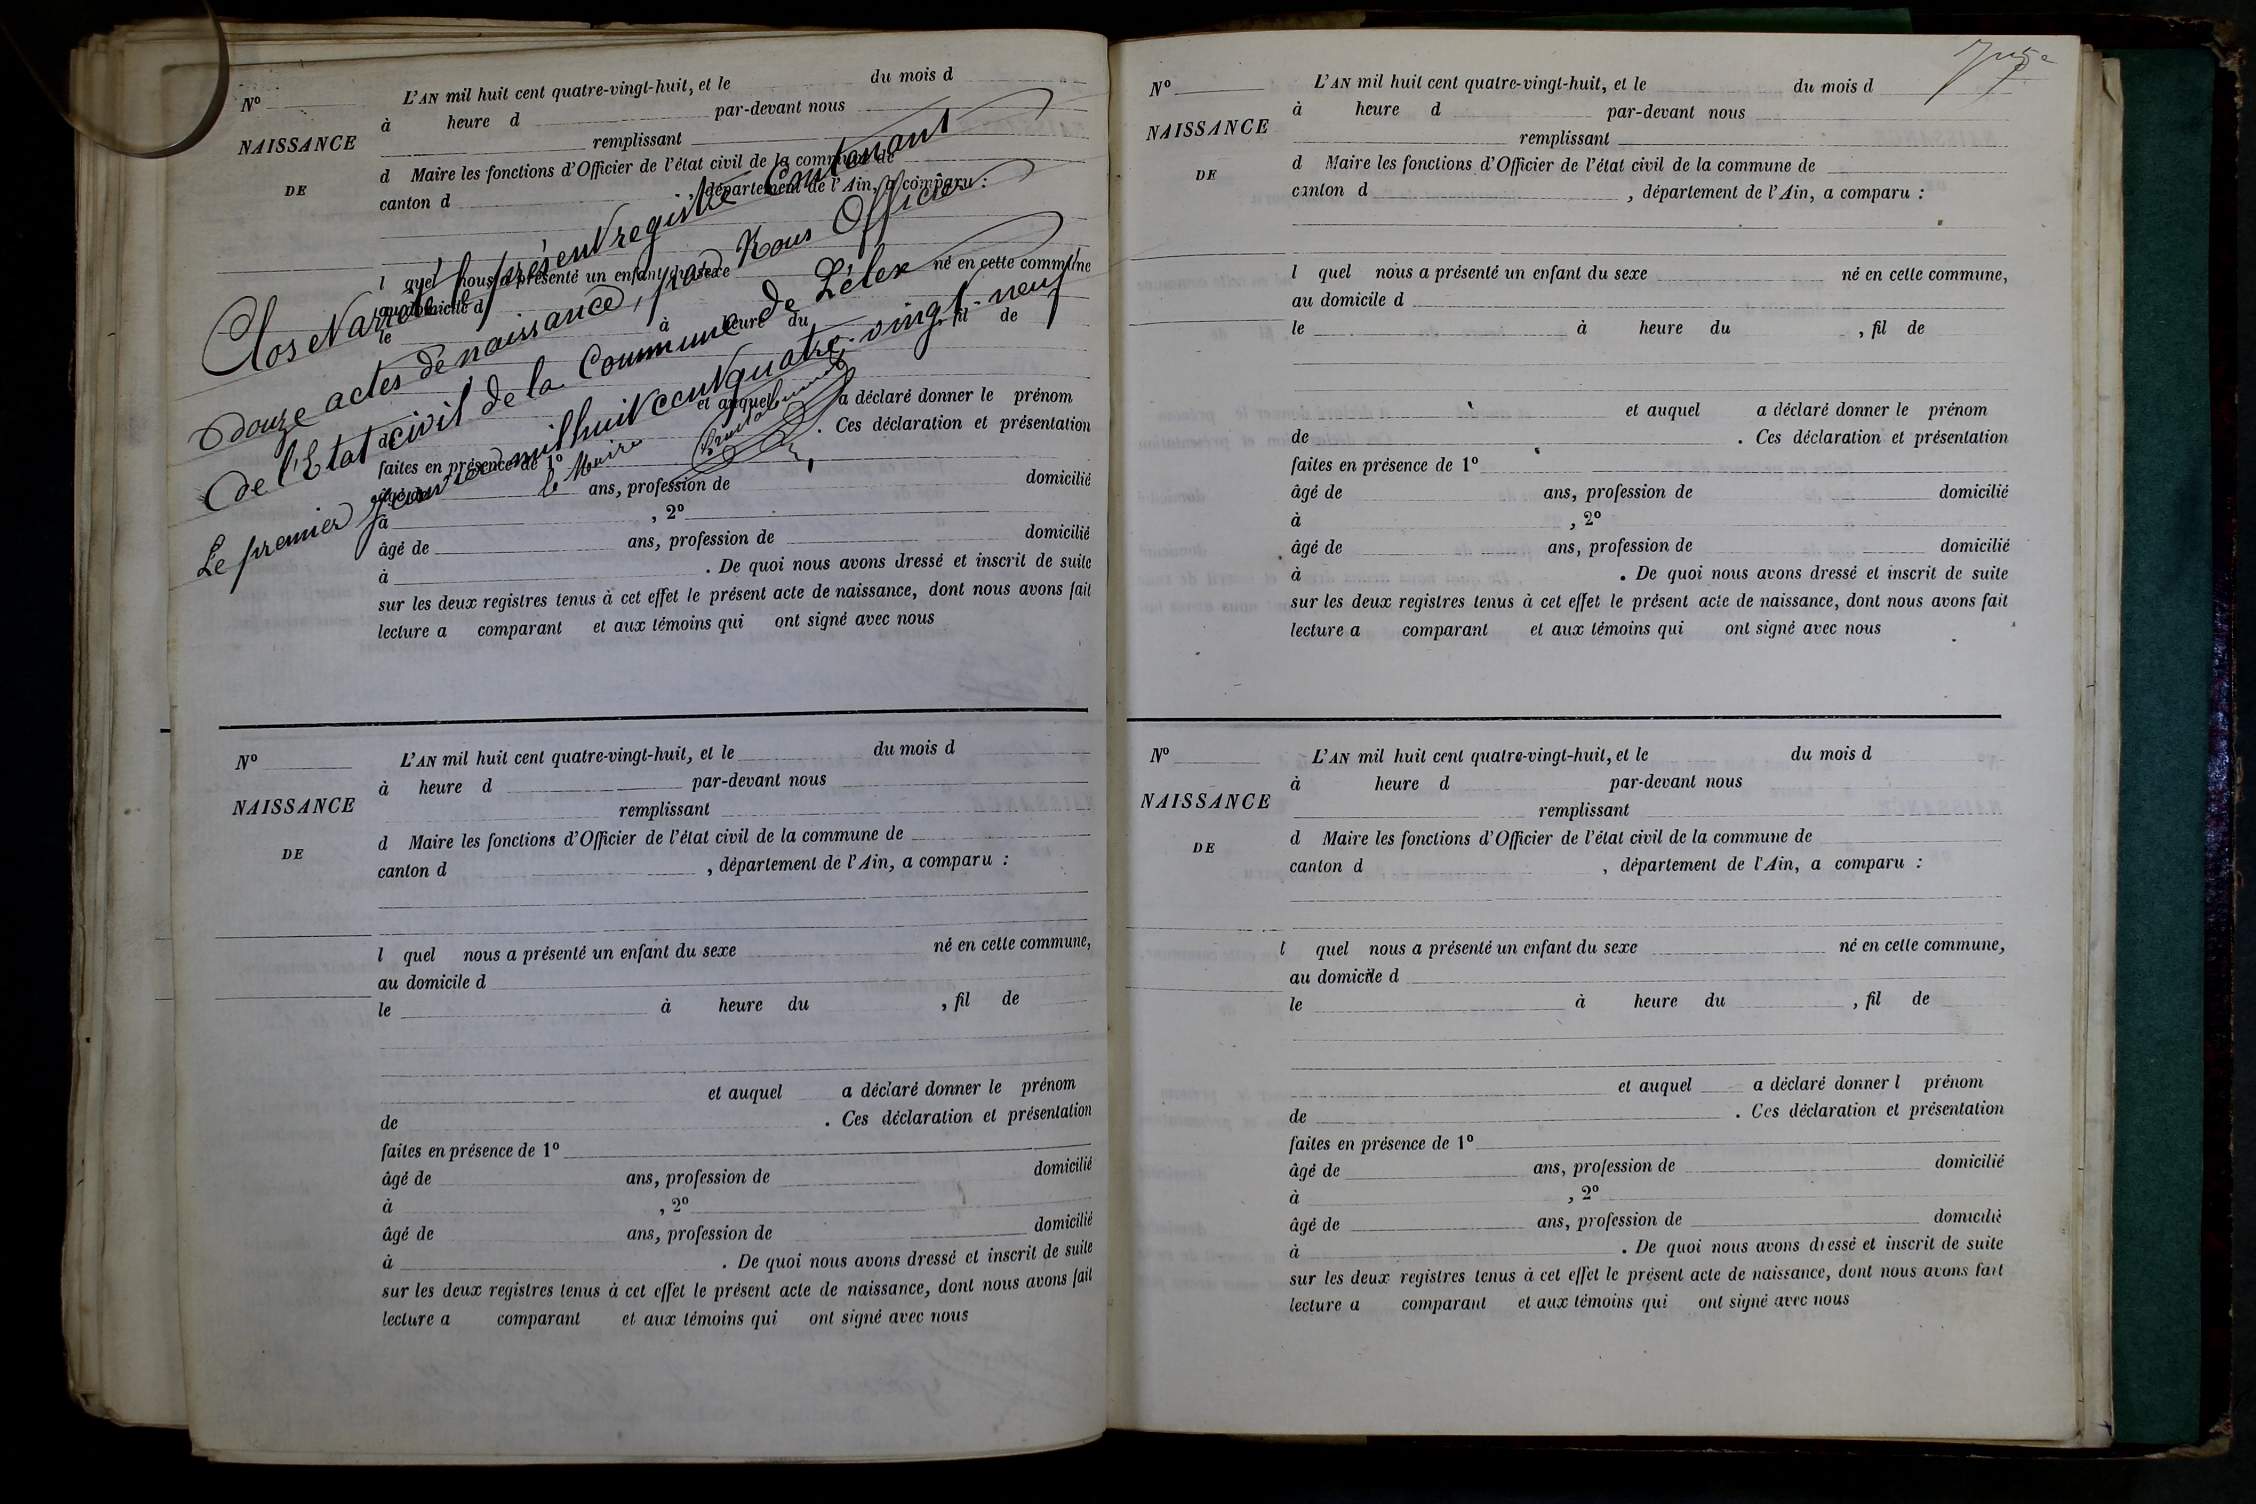 Nº
L'AN mil huit cent quatre-vingt-huit, et le du mois d
à heure d par-devant nous
NAISSANCE
remplissant
d Maire les fonctions d'Officier de l'état civil de la commune de
DE
canton d , département de l'Ain, a comparu :
l quel nous a présenté un enfant du sexe né en cette commune
au domicile d
le à heure du , fil de
et auquel a déclaré donner le prénom
de . Ces déclaration et présentation
faites en présence de 1º
âgé de ans, profession de domicilié
à , 2º
âgé de ans, profession de domicilié
à . De quoi nous avons dressé et inscrit de suite
sur les deux registres tenus à cet effet le présent acte de naissance, dont nous avons fait
lecture a comparant et aux témoins qui ont signé avec nous
Clos et arrêté le présent registre Contenant
douze actes de naissance, par Nous Officier
de l'Etat civil de la Commune de Lélex
Le premier janvier mil huit cent quatre-vingt-neuf
le Maire
Nº
L'AN mil huit cent quatre-vingt-huit, et le du mois d
à heure d par-devant nous
NAISSANCE
remplissant
d Maire les fonctions d'Officier de l'état civil de la commune de
DE
canton d , département de l'Ain, a comparu :
l quel nous a présenté un enfant du sexe né en cette commune,
au domicile d
le à heure du , fil de
et auquel a déclaré donner le prénom
de . Ces déclaration et présentation
faites en présence de 1º
âgé de ans, profession de domicilié
à , 2º
âgé de ans, profession de domicilié
à . De quoi nous avons dressé et inscrit de suite
sur les deux registres tenus à cet effet le présent acte de naissance, dont nous avons fait
lecture a comparant et aux témoins qui ont signé avec nous
Nº
L'AN mil huit cent quatre-vingt-huit, et le du mois d
à heure d par-devant nous
NAISSANCE
remplissant
d Maire les fonctions d'Officier de l'état civil de la commune de
DE
canton d , département de l'Ain, a comparu :
l quel nous a présenté un enfant du sexe né en cette commune,
au domicile d
le à heure du , fil de
et auquel a déclaré donner le prénom
de . Ces déclaration et présentation
faites en présence de 1º
âgé de ans, profession de domicilié
à , 2º
âgé de ans, profession de domicilié
à . De quoi nous avons dressé et inscrit de suite
sur les deux registres tenus à cet effet le présent acte de naissance, dont nous avons fait
lecture a comparant et aux témoins qui ont signé avec nous
Nº
L'AN mil huit cent quatre-vingt-huit, et le du mois d
à heure d par-devant nous
NAISSANCE
remplissant
d Maire les fonctions d'Officier de l'état civil de la commune de
DE
canton d , département de l'Ain, a comparu :
l quel nous a présenté un enfant du sexe né en cette commune,
au domicile d
le à heure du , fil de
et auquel a déclaré donner l prénom
de . Ces déclaration et présentation
faites en présence de 1º
âgé de ans, profession de domicilié
à , 2º
âgé de ans, profession de domicilié
à . De quoi nous avons dressé et inscrit de suite
sur les deux registres tenus à cet effet le présent acte de naissance, dont nous avons fait
lecture a comparant et aux témoins qui ont signé avec nous